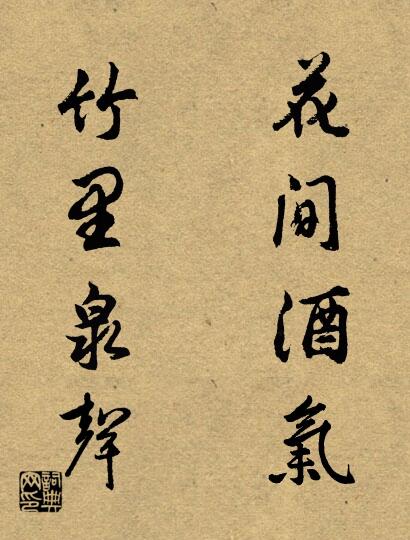 花间酒氣
竹里泉聲
詞典网印